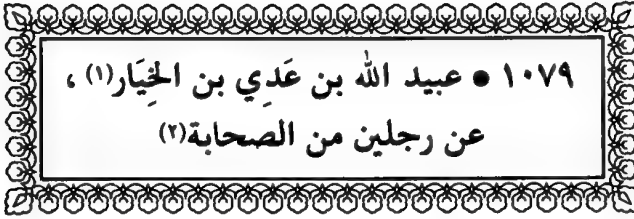 ١٠٧٩ ● عبيد الله بن عَدِي بن الخِيَار(١) ،
عن رجلين من الصحابة(٢)